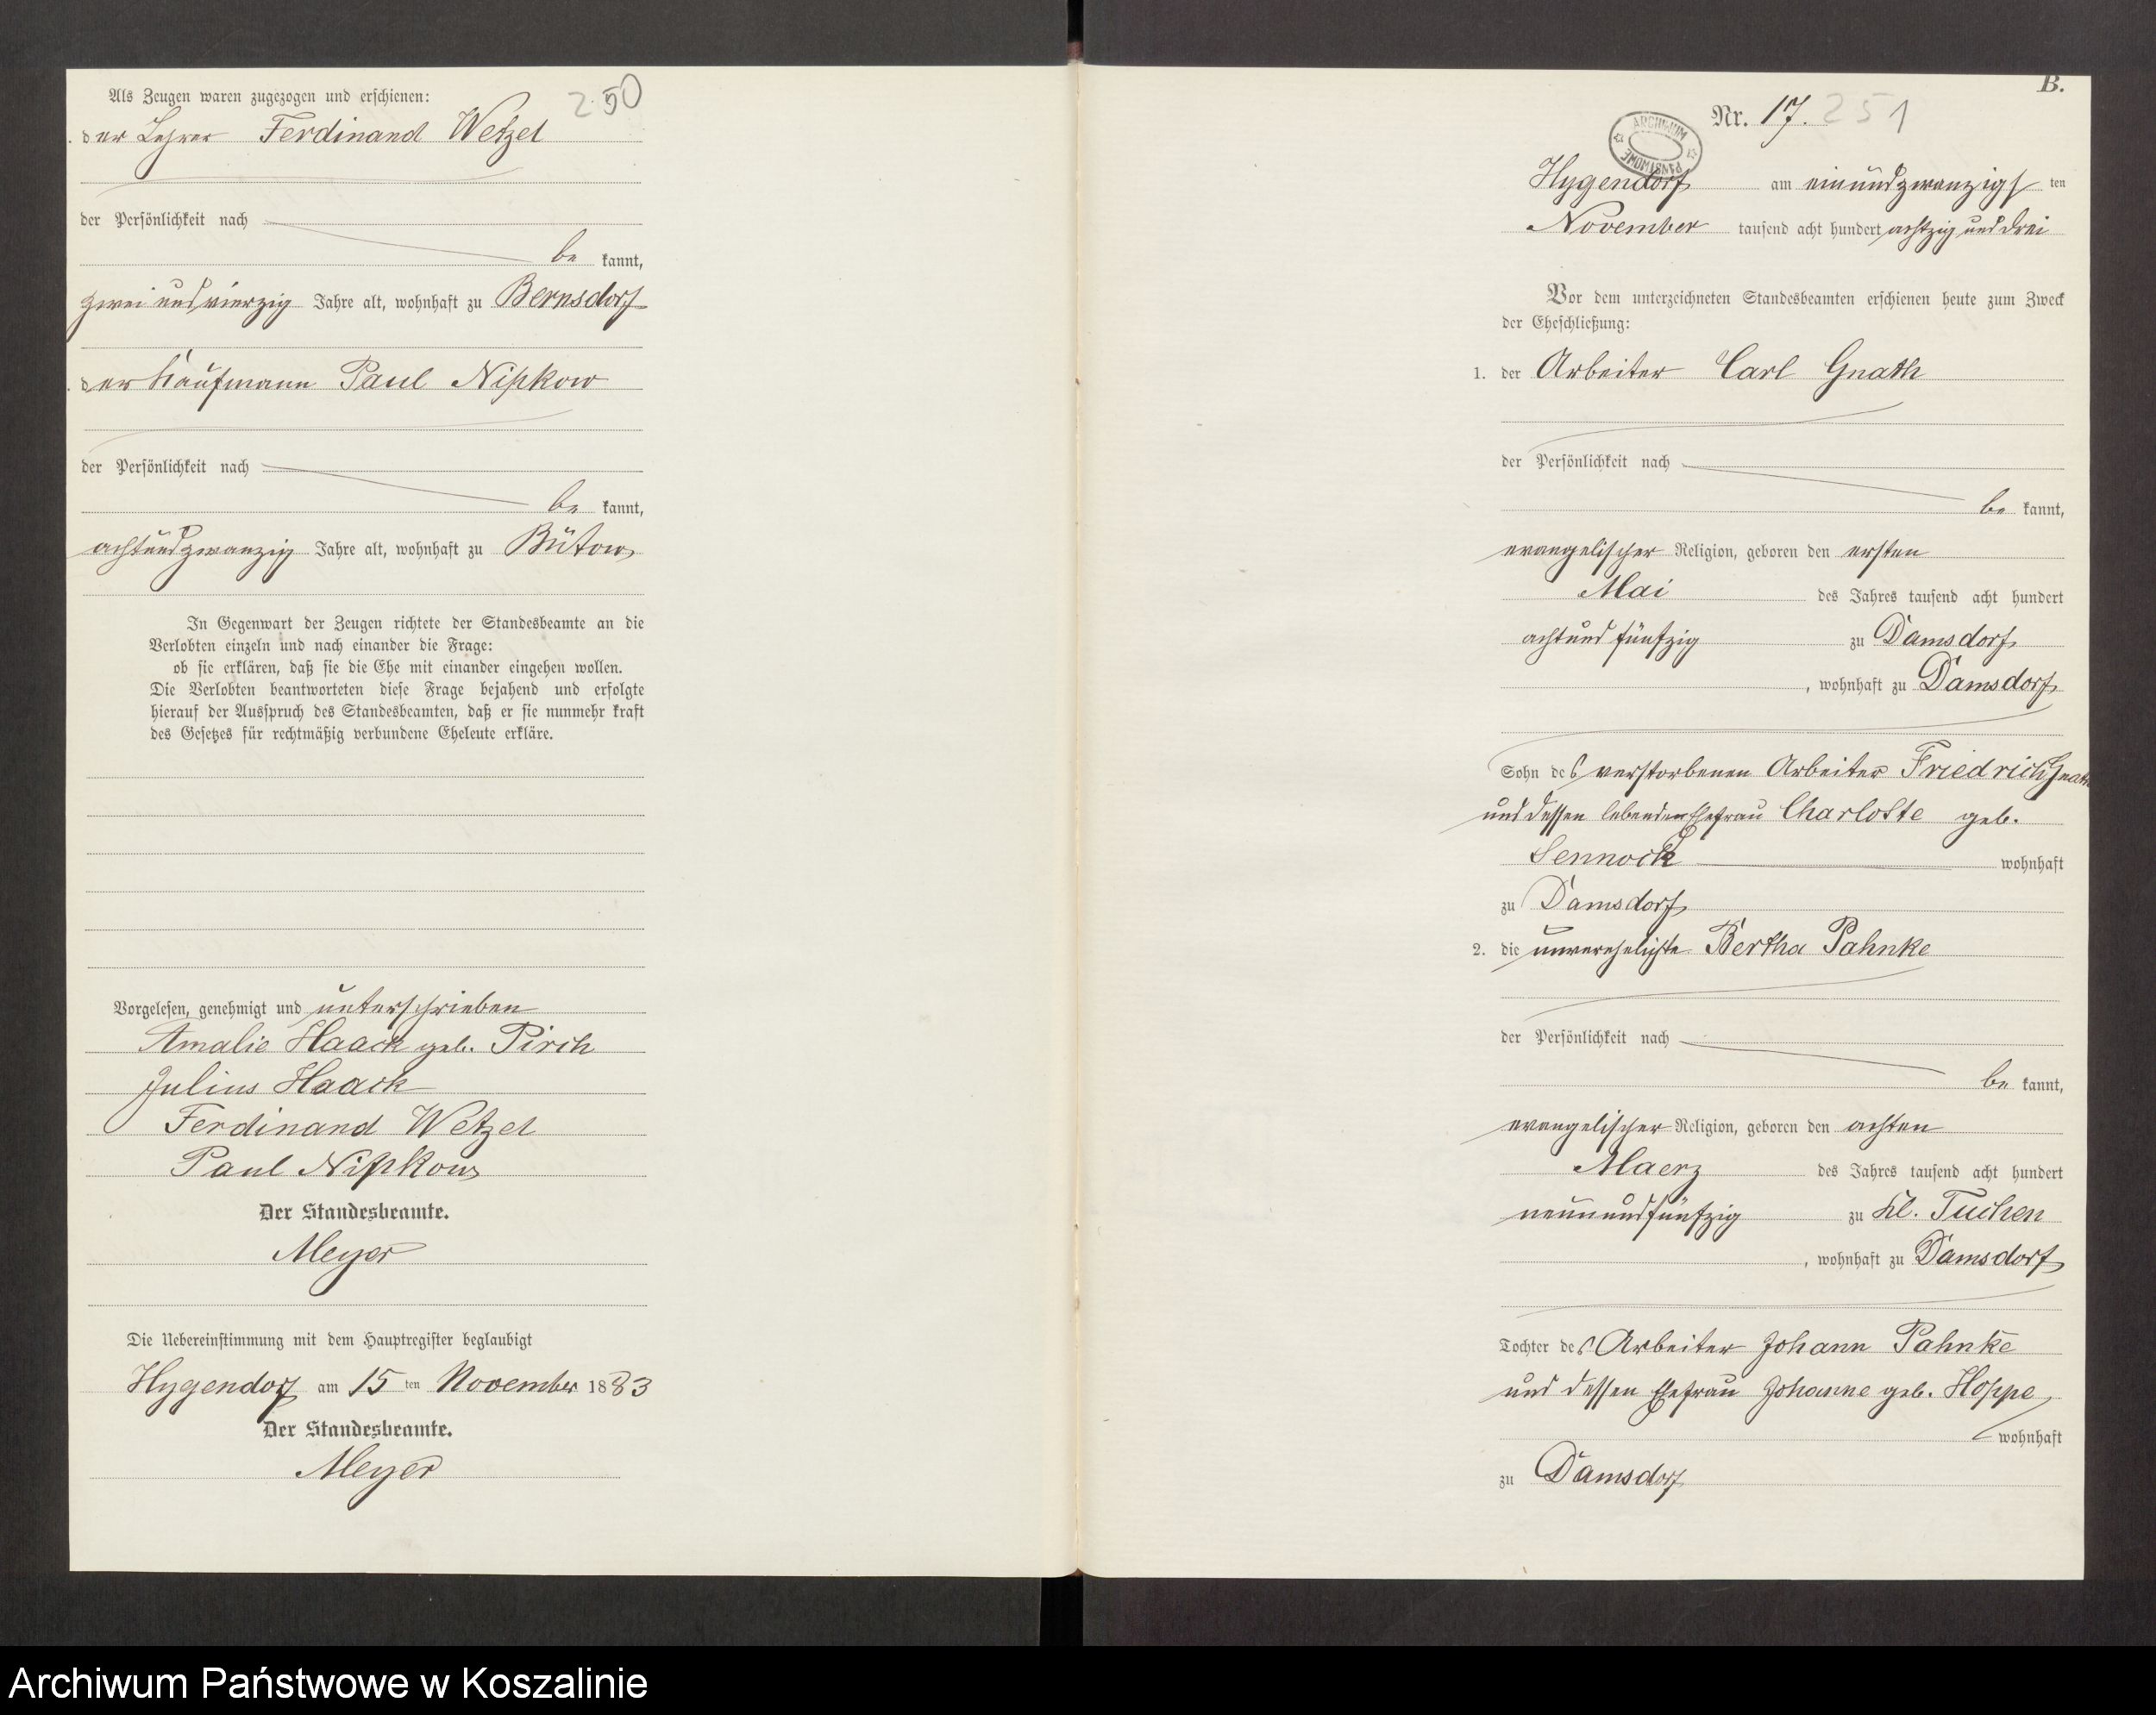 250
Als Zeugen waren zugezogen und erschienen:
der Lehrer Ferdinand Wetzel
der Persönlichkeit nach
be kannt,
zwei und vierzig Jahre alt, wohnhaft zu Bernsdorf
der Kaufmann Paul Nipkow
der Persönlichkeit nach
be kannt,
achtundzwanzig Jahre alt, wohnhaft zu Bütow
In Gegenwart der Zeugen richtete der Standesbeamte an die
Verlobten einzeln und nach einander die Frage:
ob sie erklären, daß sie die Ehe mit einander eingehen wollen.
Die Verlobten beantworteten diese Frage bejahend und erfolgte
hierauf der Ausspruch des Standesbeamten, daß er sie nunmehr kraft
des Gesetzes für rechtmäßig verbundene Eheleute erkläre.
Vorgelesen, genehmigt und unterschrieben
Amalie Haack geb. Pirch
Julius Haack
Ferdinand Wetzel
Paul Nipkow
Der Standesbeamte.
Meyer
Die Uebereinstimmung mit dem Hauptregister beglaubigt
Hygendorf am 15 ten November 1883
Der Standesbeamte.
Meyer
B.
Nr. 17. 251
ARCHIWUM PAŃSTWOWE
Hygendorf am einundzwanzigs ten
November tausend acht hundert achtzig und drei
Vor dem unterzeichneten Standesbeamten erschienen heute zum Zweck
der Eheschließung:
1. der Arbeiter Carl Gnath
der Persönlichkeit nach
be kannt,
evangelischer Religion, geboren den ersten
Mai des Jahres tausend acht hundert
achtund fünfzig zu Damsdorf
, wohnhaft zu Damsdorf
Sohn des verstorbenen Arbeiter Friedrich Gnath
und dessen lebenden Ehefrau Charlotte geb.
Sennock wohnhaft
zu Damsdorf
2. die unverehelichte Bertha Pahnke
der Persönlichkeit nach
be kannt,
evangelischer Religion, geboren den achten
Maerz des Jahres tausend acht hundert
neunundfünfzig zu Kl. Tuchen
, wohnhaft zu Damsdorf
Tochter des Arbeiter Johann Pahnke
und dessen Ehefrau Johanne geb. Hoppe
wohnhaft
zu Damsdorf
Archiwum Państwowe w Koszalinie